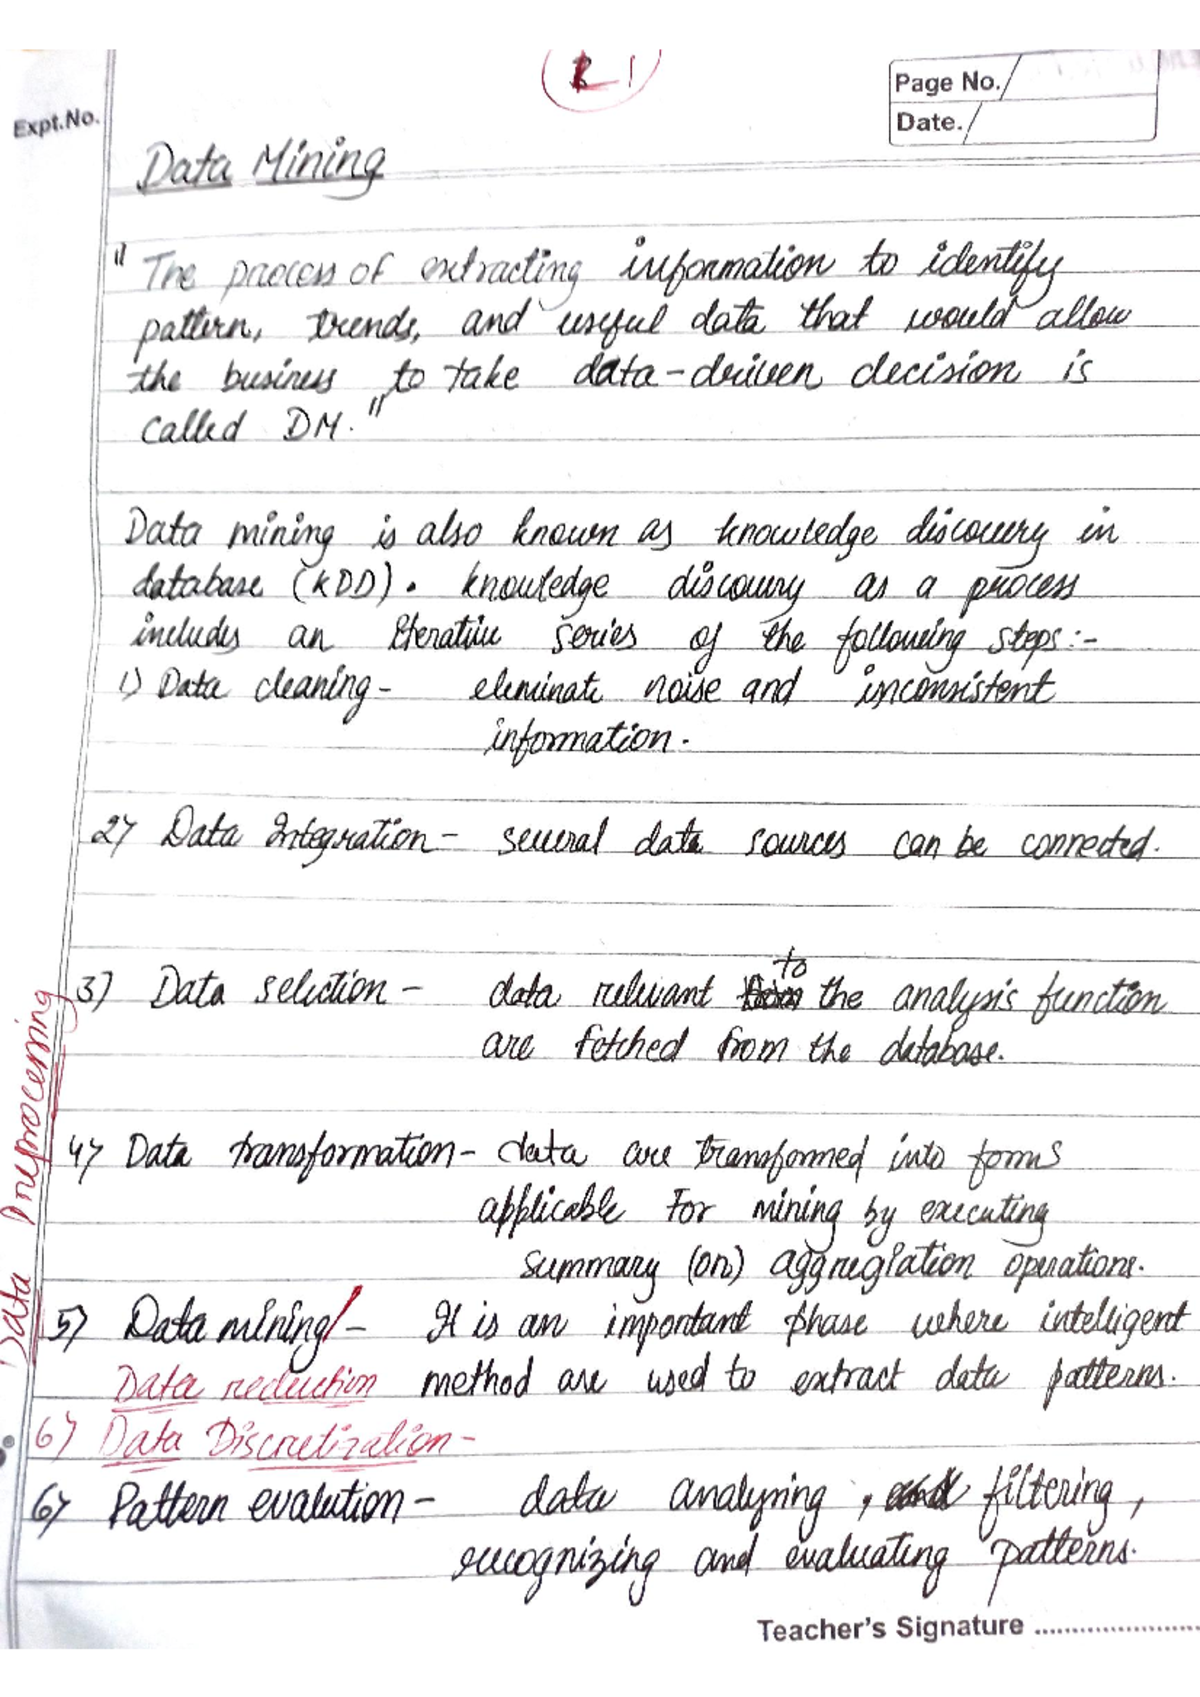 L 1
Page No.
Expt.No.
Date.
Data Mining
" The process of extracting information to identify
pattern, trends, and useful data that would allow
the business to take data-driven decision is
called DM. "
Data mining is also known as knowledge discovery in
database (KDD). knowledge discovery as a process
includes an Iterative series of the following steps:-
1) Data cleaning - eleminate noise and inconsistent
information.
2) Data Integration - several data sources can be connected.
to
3) Data selection - data relevant from the analysis function
are fetched from the database.
4) Data transformation - data are transformed into forms
applicable For mining by executing
summary (or) aggregation operations.
Data Preprocessing
5) Data mining/ - It is an important phase where intelligent
Data reduction method are used to extract data patterns.
6) Data Discretization -
6) Pattern evalution - data analying , and filtering,
recognizing and evaluating patterns.
Teacher's Signature ........................